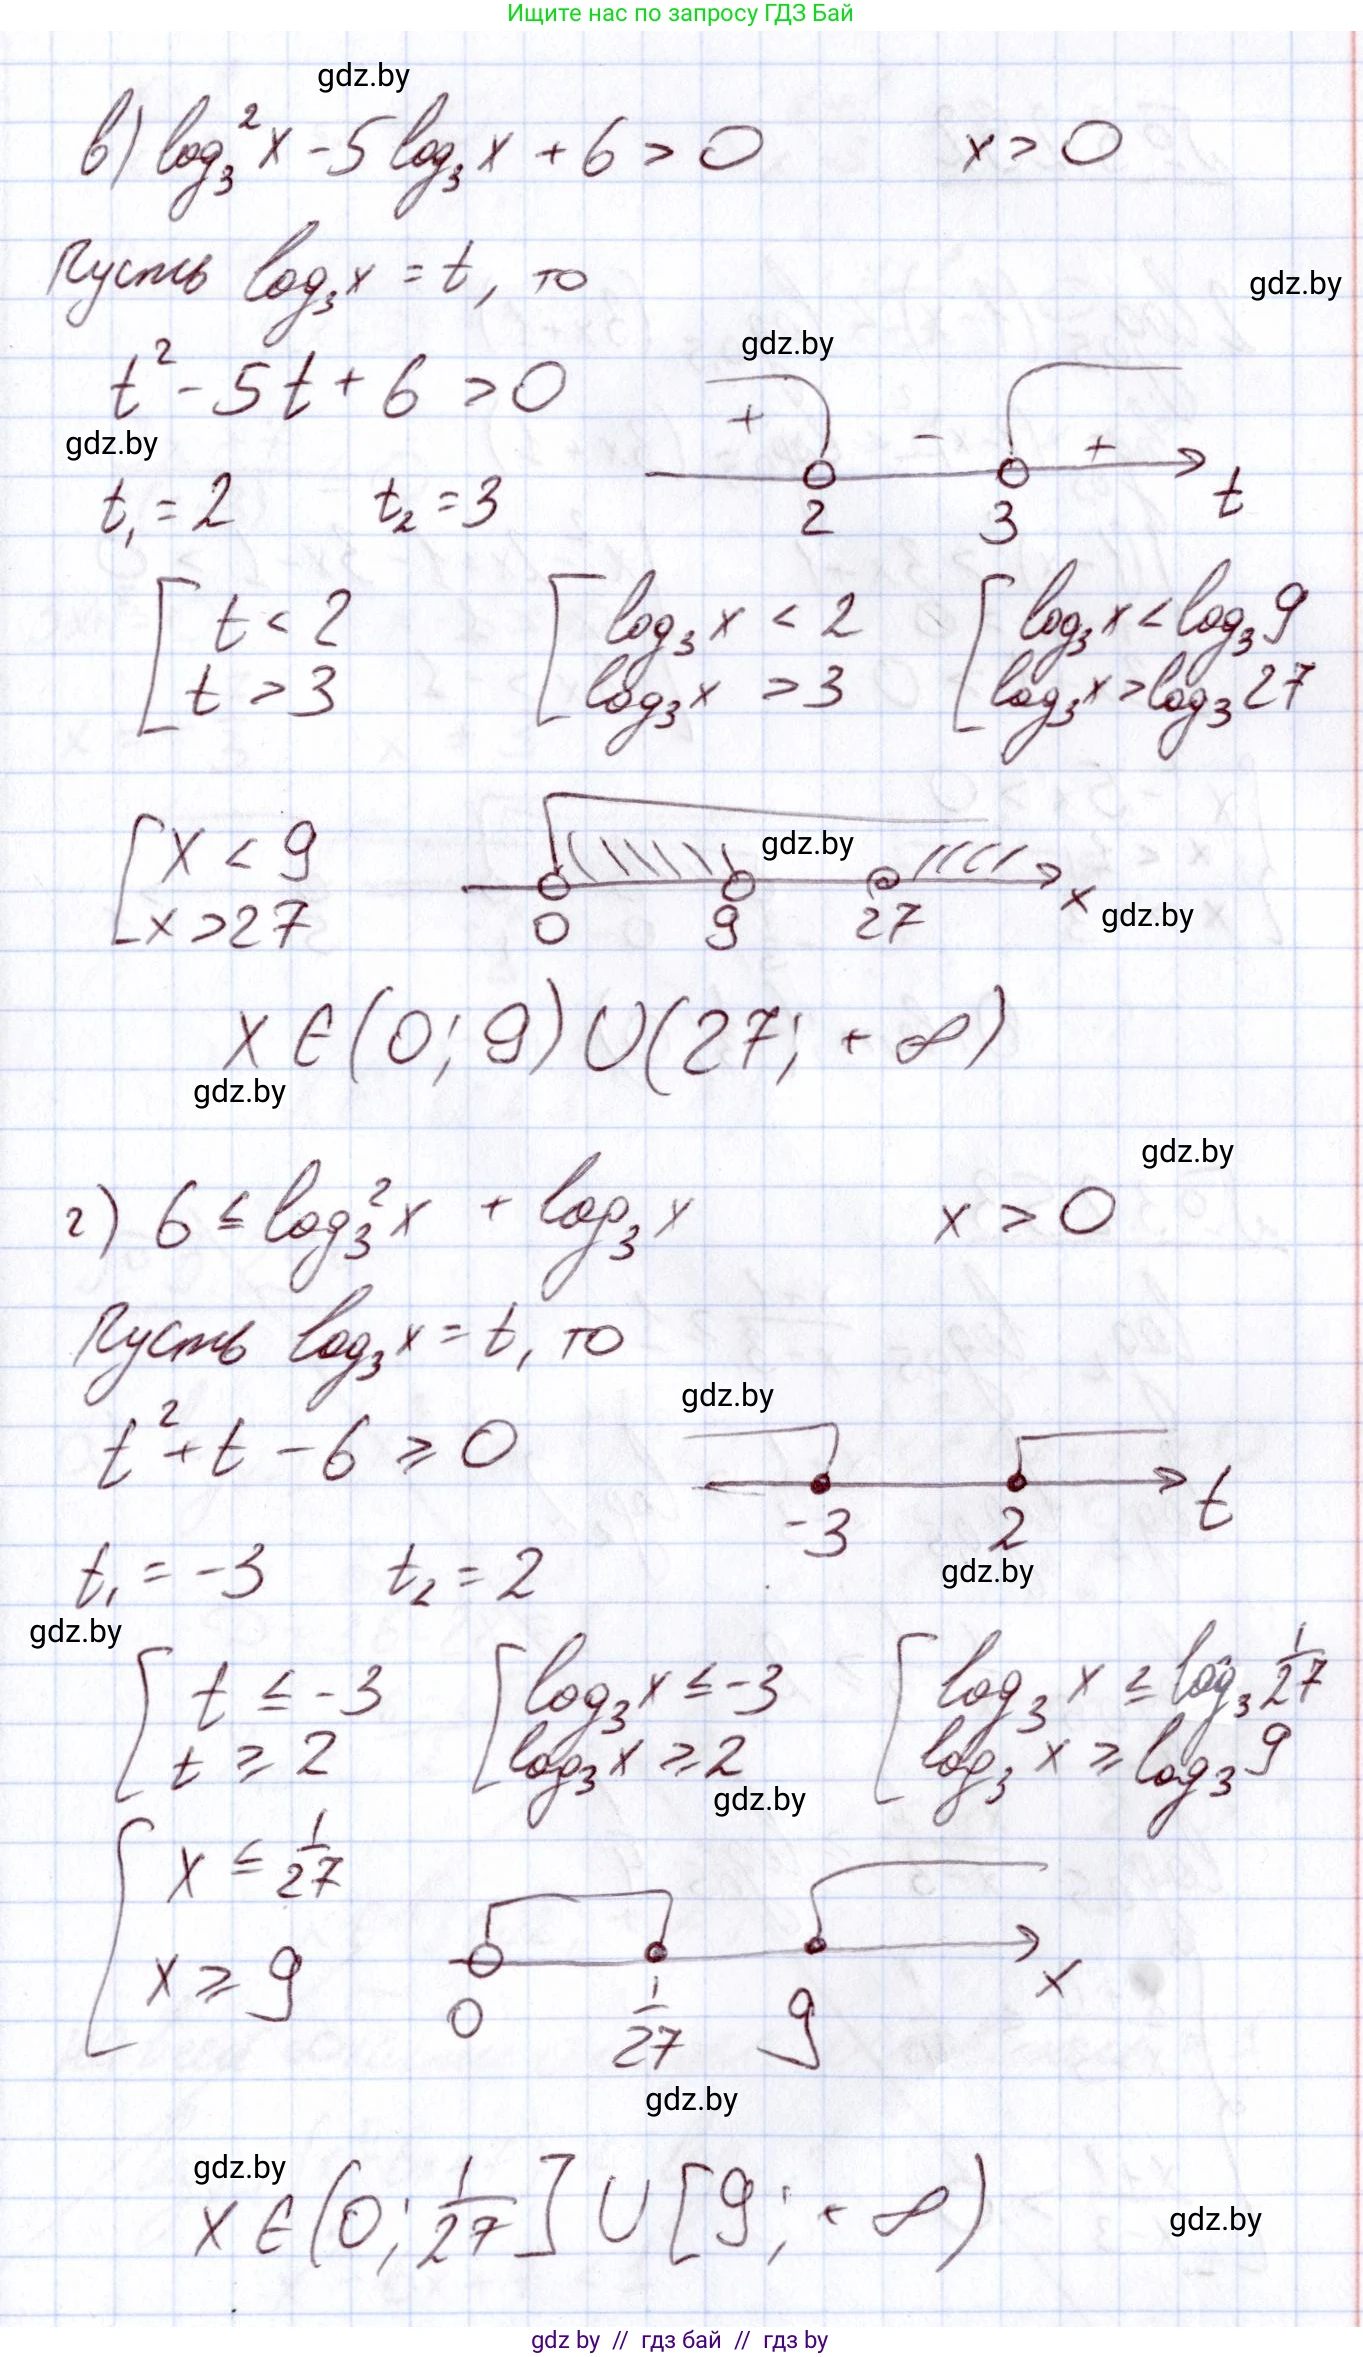 Ищите нас по запросу ГДЗ Бай
gdz.by
в) log₃²x - 5log₃x + 6 > 0 x > 0
Пусть log₃x = t, то
gdz.by
gdz.by
t² - 5t + 6 > 0
+ - +
gdz.by
2 3 t
t₁ = 2 t₂ = 3
[ t < 2 [ log₃x < 2 [ log₃x < log₃9
t > 3 log₃x > 3 log₃x > log₃27
gdz.by
[ x < 9
x > 27
0 9 27 x
gdz.by
x ∈ (0; 9) ∪ (27; +∞)
gdz.by
gdz.by
г) 6 ≤ log₃²x + log₃x x > 0
Пусть log₃x = t, то
gdz.by
t² + t - 6 ≥ 0
-3 2 t
gdz.by
t₁ = -3 t₂ = 2
gdz.by
[ t ≤ -3 [ log₃x ≤ -3 [ log₃x ≤ log₃ 1/27
t ≥ 2 log₃x ≥ 2 log₃x ≥ log₃9
gdz.by
[ x ≤ 1/27
x ≥ 9
0 1/27 9 x
gdz.by
gdz.by
x ∈ (0; 1/27] ∪ [9; +∞)
gdz.by
gdz by // гдз бай // гдз by